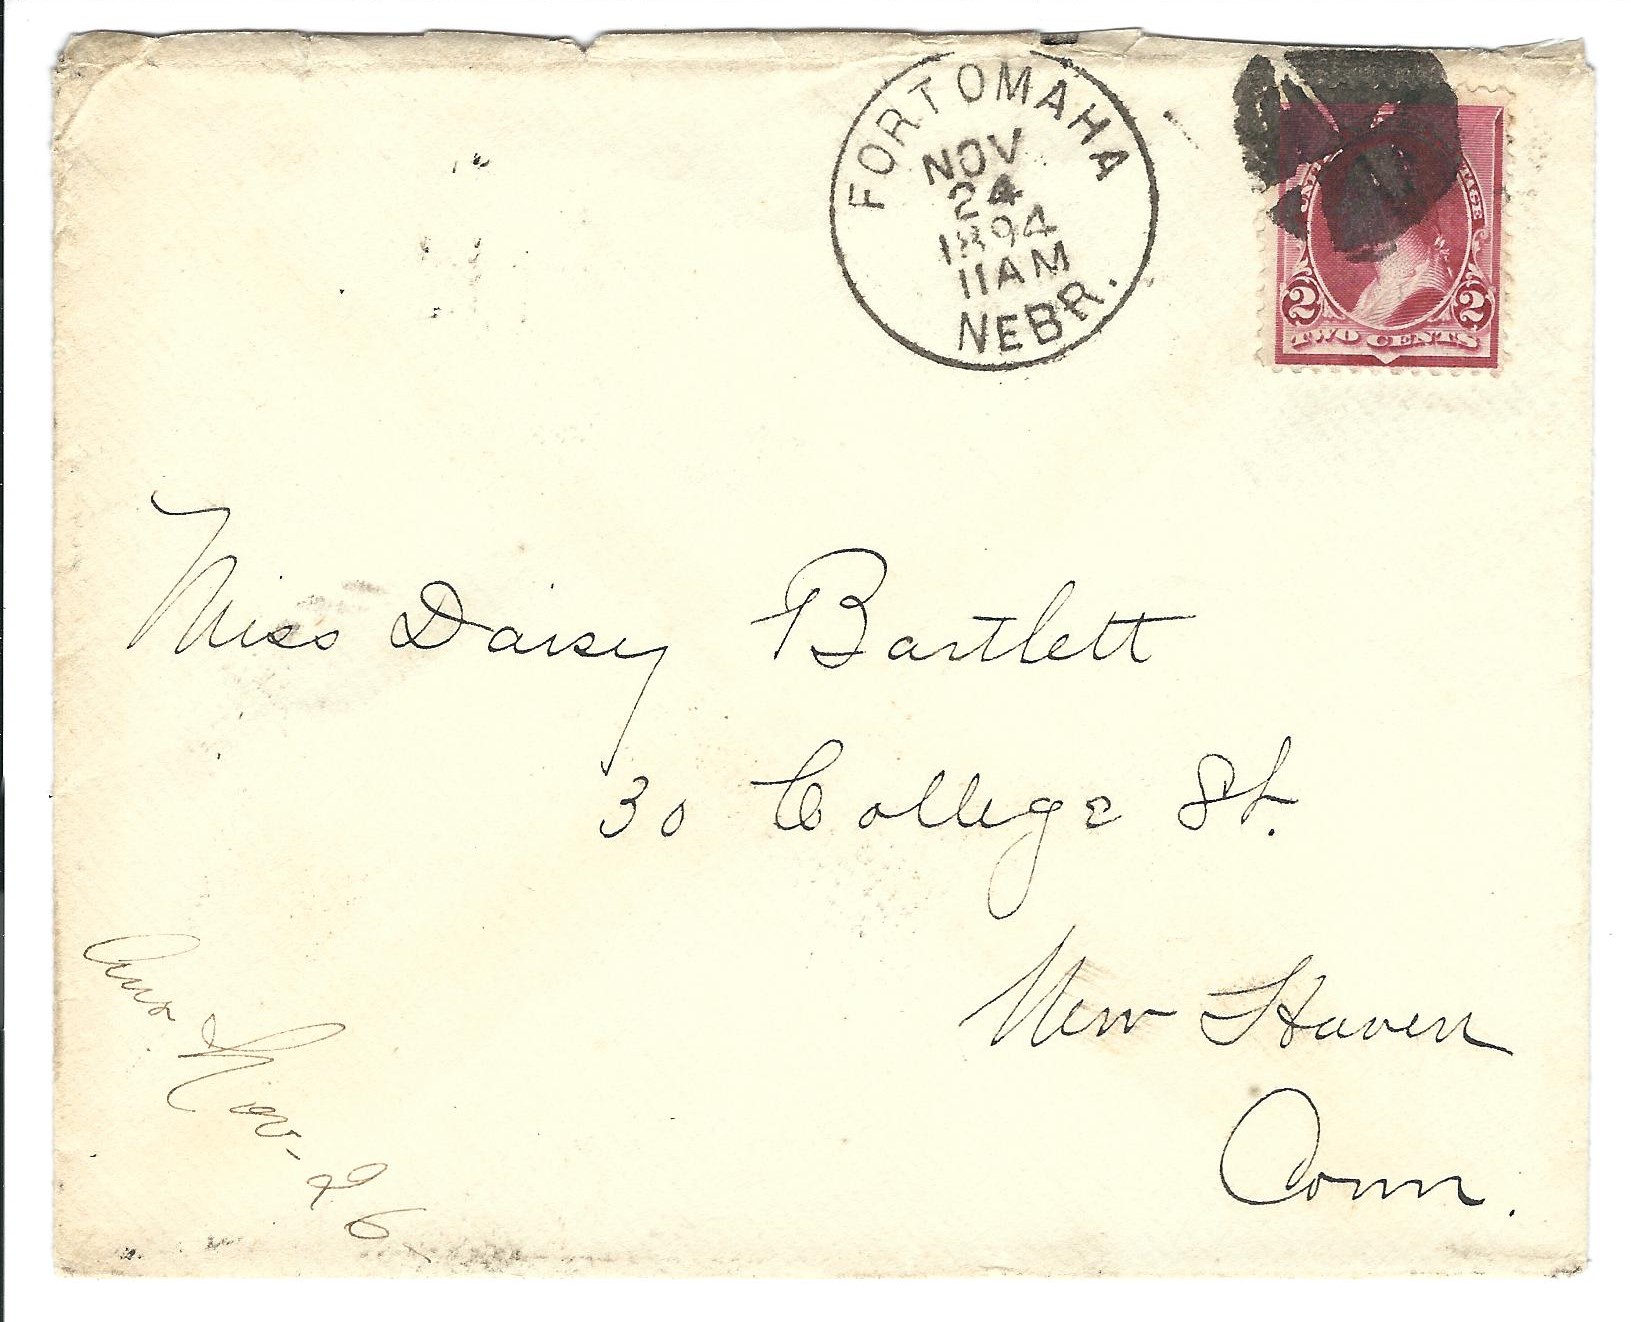 FORT OMAHA
NOV
24
1894
11AM
NEBR.
2 2
TWO CENTS
Miss Daisy Bartlett
30 College St.
New Haven
Conn.
Ans Nov-26